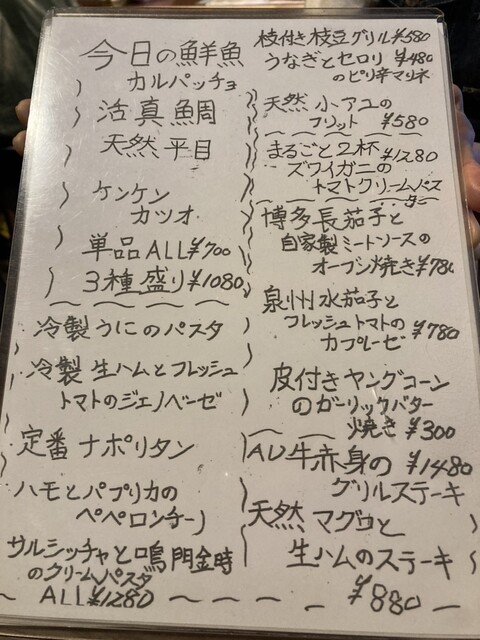 今日の鮮魚
カルパッチョ
活真鯛
天然平目
ケンケン
カツオ
単品ALL¥700
3種盛り¥1080
冷製うにのパスタ
冷製生ハムとフレッシュ
トマトのジェノベーゼ
定番ナポリタン
ハモとパプリカの
ペペロンチーノ
サルシッチャと鳴門金時
のクリームパスタ
ALL¥1280
枝付き枝豆グリル¥580
うなぎとセロリ ¥480
のピリ辛マリネ
天然小アユの
フリット ¥580
まるごと2杯 ¥1280
ズワイガニの
トマトクリームパス
ター
博多長茄子と
自家製ミートソースの
オーブン焼き¥780
泉州水茄子と
フレッシュトマトの ¥780
カプレーゼ
皮付きヤングコーン
のガーリックバター
焼き ¥300
AU牛赤身の ¥1480
グリルステーキ
天然マグロと
生ハムのステーキ
¥880